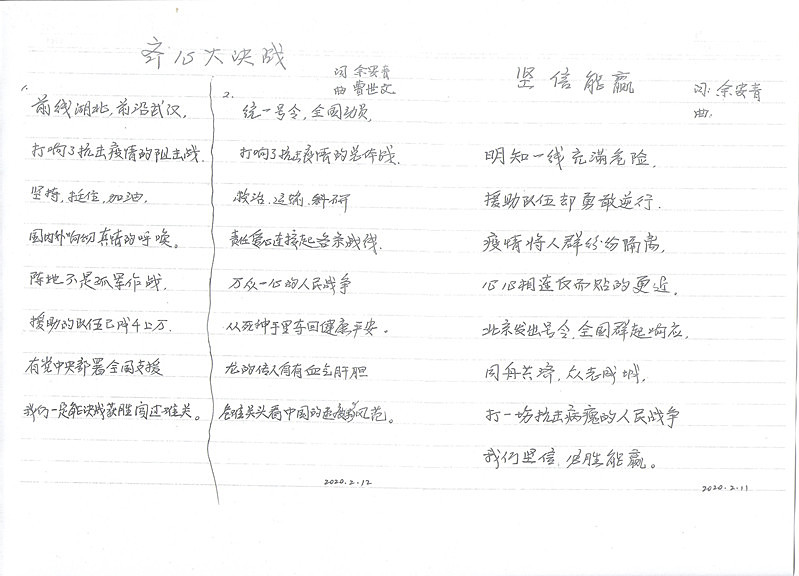 齐心大决战
词 余安音
曲 曹世文
1.
前线湖北,前沿武汉,
打响了抗击疫情的阻击战.
坚持,挺住,加油,
国内外响彻真情的呼唤。
阵地不是孤军作战.
援助的队伍已成千上万.
有党中央部署全国支援
我们一定能决战获胜闯过难关。
2.
统一号令,全国动员,
打响了抗击疫情的总体战.
救治.运输.科研
责任爱心连接起各条战线.
万众一心的人民战争
从死神手里夺回健康平安。
龙的传人自有血气肝胆
危难关头看中国的风范。
2020.2.12
坚信能赢
词:余安音
曲:
明知一线充满危险.
援助队伍却勇敢逆行.
疫情将人群纷纷隔离,
心心相连反而贴的更近.
北京发出号令,全国群起响应.
同舟共济,众志成城.
打一场抗击病魔的人民战争
我们坚信.必胜能赢。
2020.2.11